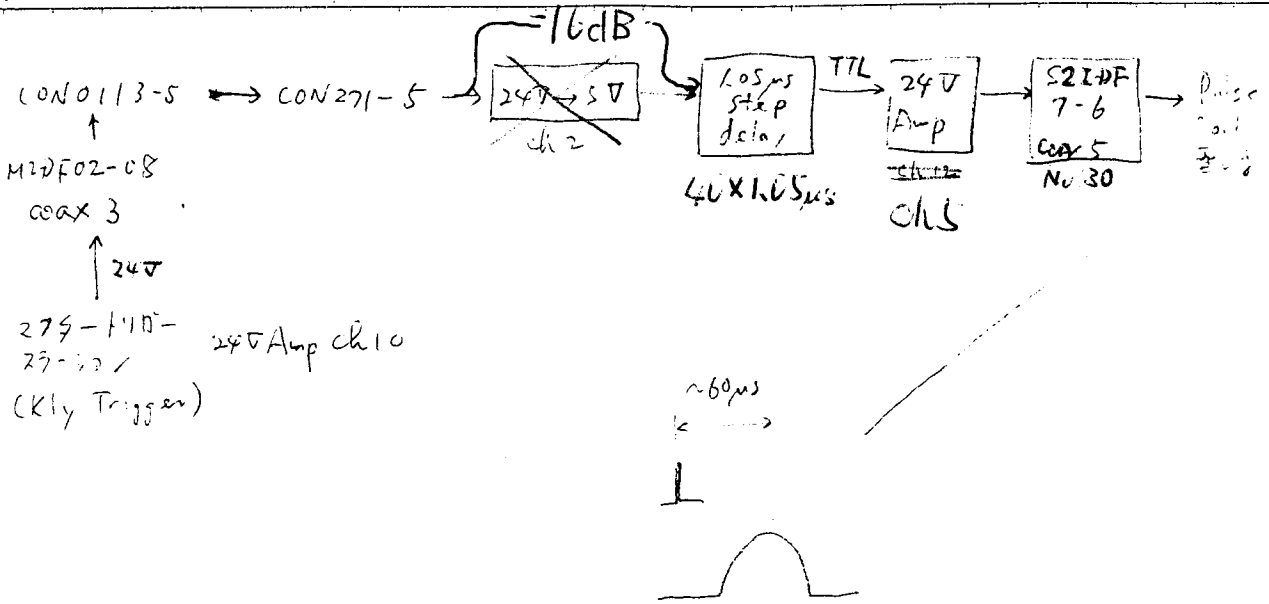 -16dB
CON0113-5 ↔ CON271-5 → 24V→5V
ch 2
1.05μs
step
delay
40×1.05μs
TTL
24V
Amp
ch 12
ch 5
S2IDF
7-6
coax 5
No 30
Pulse
MIDF02-08
coax 3
24V
24V Amp ch10
(Kly Trigger)
~60μs